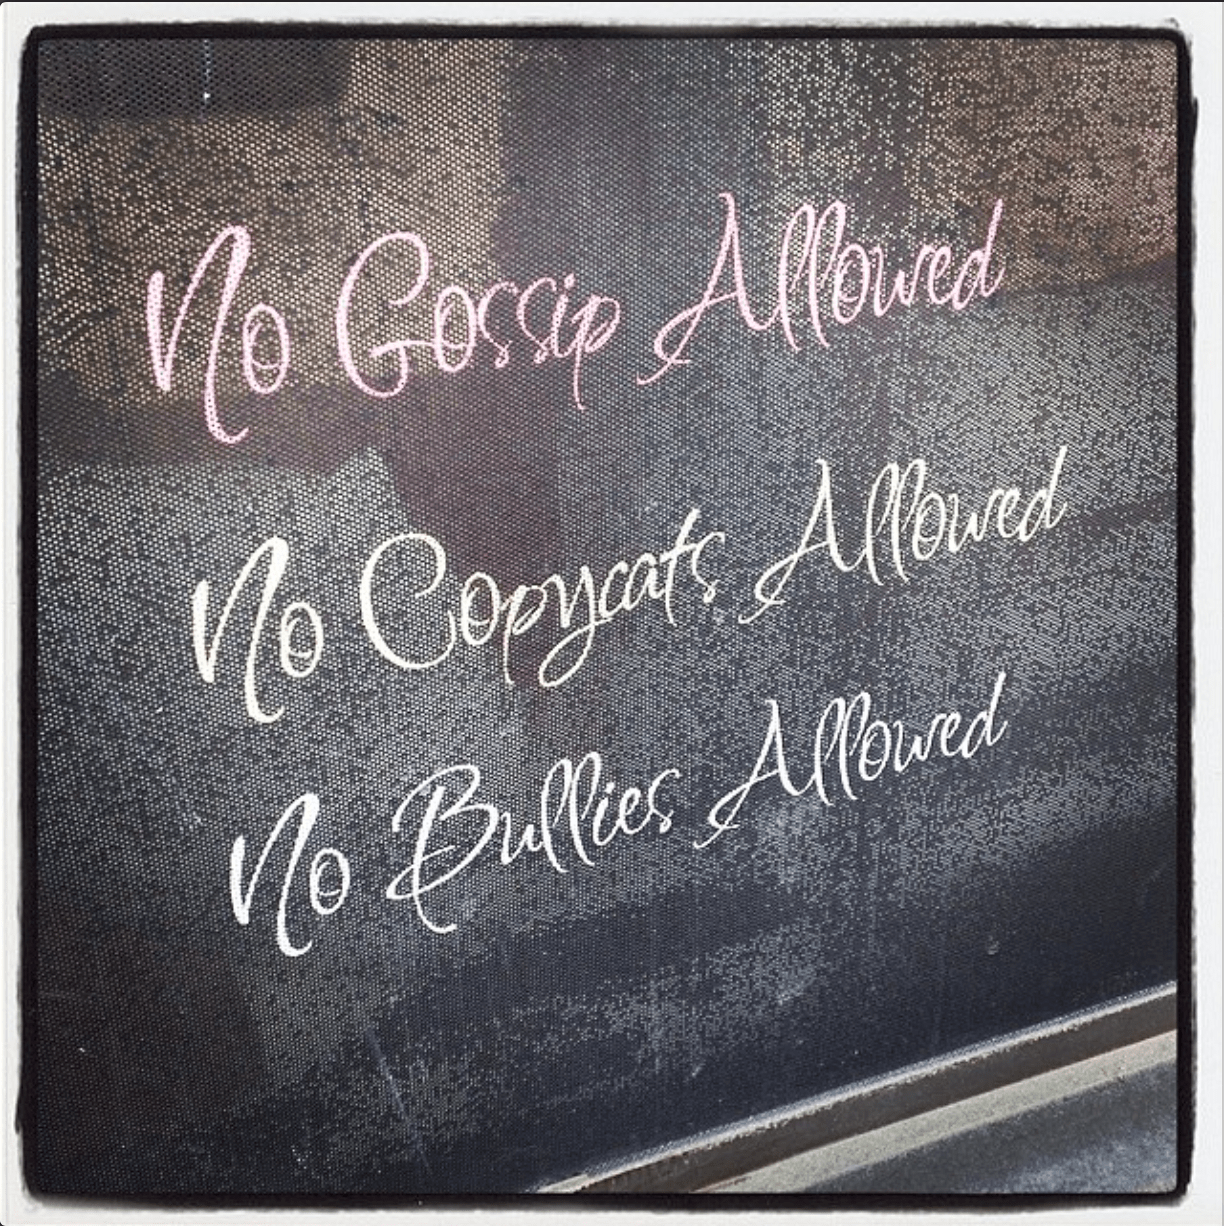 No Gossip Allowed
No Copycats Allowed
No Bullies Allowed